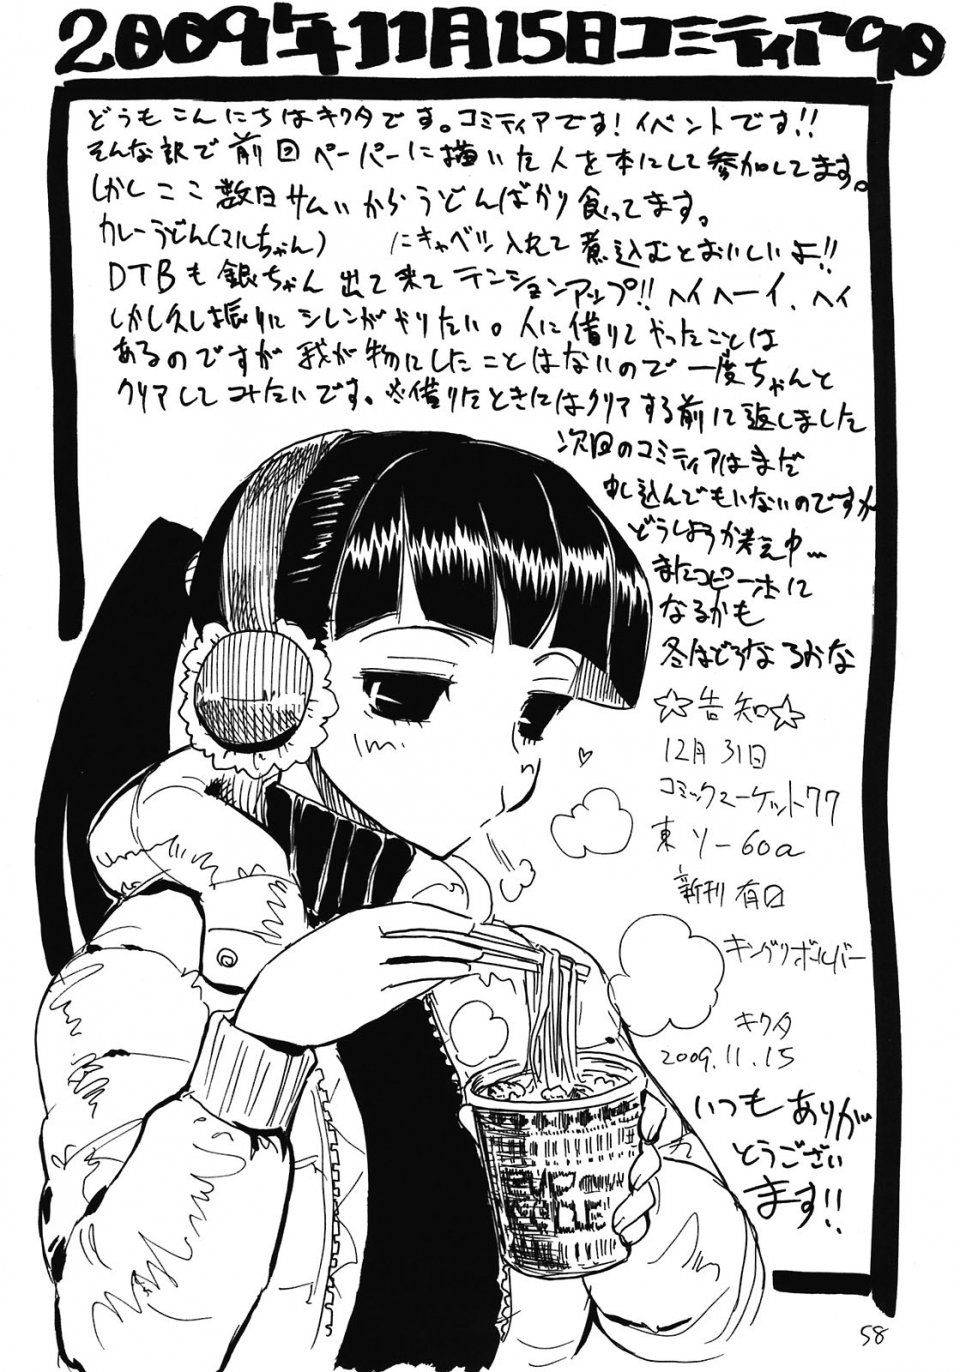 2009年11月15日コミティア90
どうもこんにちはキクタです。コミティアです！イベントです!!
そんな訳で前回ペーパーに描いた人を本にして参加してます。
しかしここ数日サムいからうどんばかり食ってます。
カレーうどん(マルちゃん)　　にキャベツ入れて煮込むとおいしいよ!!
DTBも銀ちゃん出て来てテンションアップ!!ヘイヘーイ、ヘイ
しかし久し振りにシレンがやりたい。人に借りてやったことは
あるのですが我が物にしたことはないので一度ちゃんと
クリアしてみたいです。※借りたときにはクリアする前に返しました
次回のコミティアはまだ
申し込んでもいないのですが
どうしようか考え中…
またコピー本に
なるかも
冬はどうなるかな
☆告知☆
12月31日
コミックマーケット77
東ソ-60a
新刊有回
キングリボルバー
キクタ
2009.11.15
いつもありが
とうござい
ます!!
CUP
58